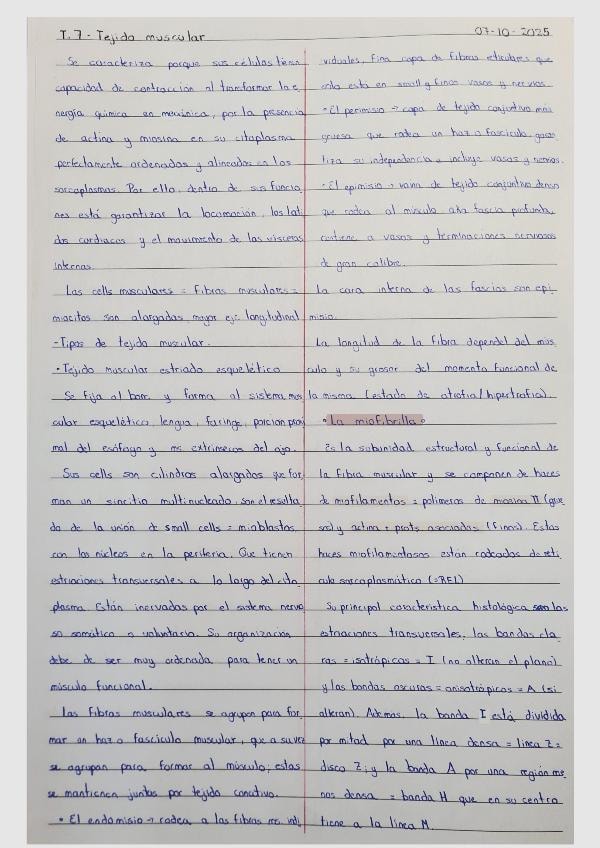 T.7 - Tejido muscular 07-10-2025
Se caracteriza porque sus células tienen
capacidad de contracción al transformar la e
nergía química en mecánica, por la presencia
de actina y miosina en su citoplasma
perfectamente ordenados y alineados en los
sarcoplasmas. Por ello, dentro de sus funcio
nes está garantizar la locomoción, los lati
dos cardiacos y el movimiento de las vísceras
internas.
Las cells musculares = fibras musculares =
miocitos son alargadas, mayor eje longitudinal
-Tipos de tejido muscular.
• Tejido muscular estriado esquelético
Se fija al y forma al sistema mus
cular esquelético, lengua, faringe, porción proxi
mal del esófago y ms extrínsecos del ojo.
Sus cells son cilindros alargados que for
man un sincitio multinucleado, son el resulta
do de la unión de small cells = mioblastos,
con los núcleos en la periferia. Que tienen
estriaciones transversales a lo largo del cito
plasma. Están inervadas por el sistema nervio
so somático o voluntario. Su organización
debe de ser muy ordenada para tener un
músculo funcional.
Las fibras musculares se agrupan para for
mar un haz o fascículo muscular, que a su vez
se agrupan para formar al músculo; estas
se mantienen juntas por tejido conectivo.
• El endomisio → rodea a las fibras ms. indi
viduales, fina capa de fibras reticulares que
solo está en small y finos vasos y nervios.
• El perimisio → capa de tejido conjuntivo más
gruesa que rodea un haz o fascículo, garan
tiza su independencia e incluye vasos y nervios.
• El epimisio → vaina de tejido conjuntivo denso
que rodea al músculo fascia profunda,
contiene a vasos y terminaciones nerviosas
de gran calibre.
La cara interna de las fascias son epi
misio.
La longitud de la fibra dependel del mús
culo y su grosor del momento funcional de
la misma (estado de atrofia/hipertrofia).
• La miofibrilla •
Es la subunidad estructural y funcional de
la fibra muscular y se componen de haces
de miofilamentos = polímeros de miosina II (grue
sos) y actina + prots asociadas (finos). Estos
haces miofilamentosos están rodeados de retí
culo sarcoplasmático (=REL)
Su principal característica histológica son las
estriaciones transversales, las bandas cla
ras = isotrópicas = I (no alteran el plano)
y las bandas oscuras = anisotrópicas = A (si
alteran). Además, la banda I está dividida
por mitad por una línea densa = línea Z =
disco Z; y la banda A por una región me
nos densa = banda H que en su centro
tiene a la línea M.